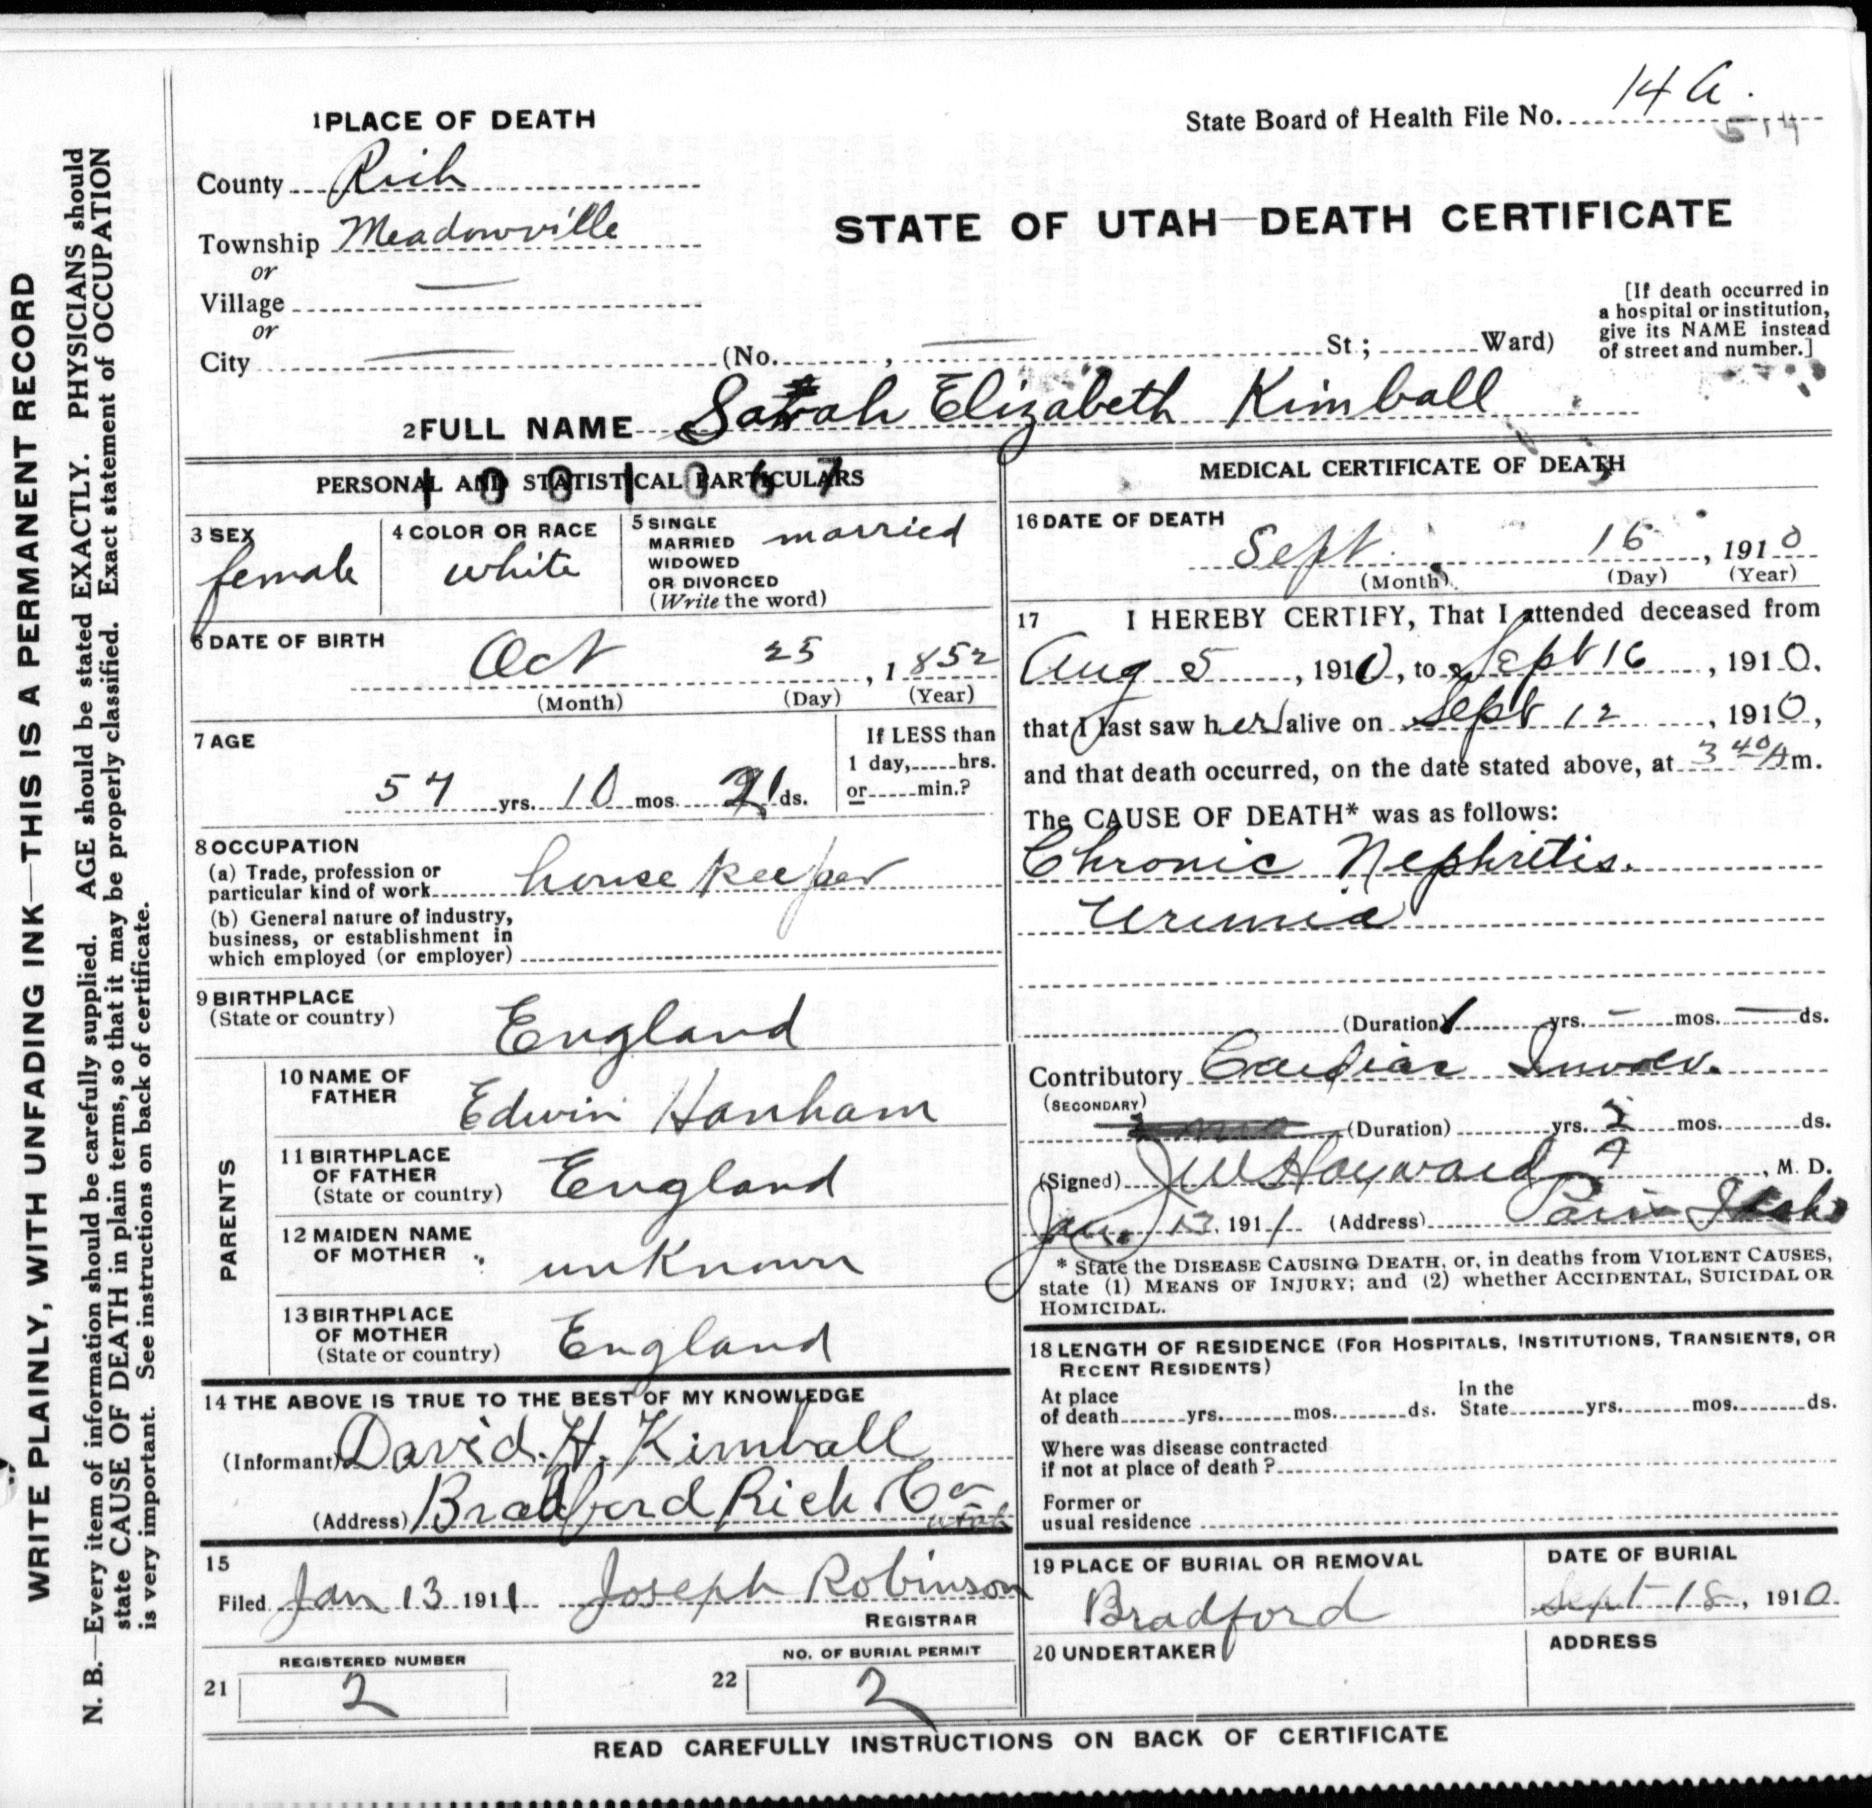 WRITE PLAINLY, WITH UNFADING INK—THIS IS A PERMANENT RECORD
N. B.—Every item of information should be carefully supplied. AGE should be stated EXACTLY. PHYSICIANS should
state CAUSE OF DEATH in plain terms, so that it may be properly classified. Exact statement of OCCUPATION
is very important. See instructions on back of certificate.
1 PLACE OF DEATH
State Board of Health File No. 14 A.
514
County Rich
Township Meadowville
or
Village —
or
City — (No. , — St ; Ward)
STATE OF UTAH—DEATH CERTIFICATE
[If death occurred in
a hospital or institution,
give its NAME instead
of street and number.]
2 FULL NAME Sarah Elizabeth Kimball
PERSONAL AND STATISTICAL PARTICULARS
1001067
3 SEX
female
4 COLOR OR RACE
white
5 SINGLE
MARRIED
WIDOWED
OR DIVORCED
(Write the word)
married
6 DATE OF BIRTH
Oct 25, 1852
(Month) (Day) (Year)
7 AGE
57 yrs. 10 mos. 21 ds.
If LESS than
1 day, hrs.
or min.?
8 OCCUPATION
(a) Trade, profession or
particular kind of work house keeper
(b) General nature of industry,
business, or establishment in
which employed (or employer)
9 BIRTHPLACE
(State or country)
England
PARENTS
10 NAME OF
FATHER
Edwin Hanham
11 BIRTHPLACE
OF FATHER
(State or country)
England
12 MAIDEN NAME
OF MOTHER
unKnown
13 BIRTHPLACE
OF MOTHER
(State or country)
England
14 THE ABOVE IS TRUE TO THE BEST OF MY KNOWLEDGE
(Informant) David. H. Kimball
(Address) Bradford Rich Co
utah
15
Filed Jan 13 1911 Joseph Robinson
REGISTRAR
21 REGISTERED NUMBER
2
22 NO. OF BURIAL PERMIT
2
MEDICAL CERTIFICATE OF DEATH
16 DATE OF DEATH
Sept. 16, 1910
(Month) (Day) (Year)
17 I HEREBY CERTIFY, That I attended deceased from
Aug 5, 1910, to Sept 16, 1910.
that I last saw her alive on Sept 12, 1910,
and that death occurred, on the date stated above, at 3 40 A m.
The CAUSE OF DEATH* was as follows:
Chronic Nephritis.
Uremia
(Duration) 1 yrs. — mos. — ds.
Contributory Cardiac Involv.
(SECONDARY)
(Duration) yrs. 2 mos. ds.
(Signed) J W Hayward, M. D.
Jan. 13, 1911 (Address) Paris Idaho
* State the DISEASE CAUSING DEATH, or, in deaths from VIOLENT CAUSES,
state (1) MEANS OF INJURY; and (2) whether ACCIDENTAL, SUICIDAL OR
HOMICIDAL.
18 LENGTH OF RESIDENCE (FOR HOSPITALS, INSTITUTIONS, TRANSIENTS, OR
RECENT RESIDENTS)
At place
of death yrs. mos. ds.
In the
State yrs. mos. ds.
Where was disease contracted
if not at place of death ?
Former or
usual residence
19 PLACE OF BURIAL OR REMOVAL
Bradford
DATE OF BURIAL
Sept 18, 1910.
20 UNDERTAKER
ADDRESS
READ CAREFULLY INSTRUCTIONS ON BACK OF CERTIFICATE